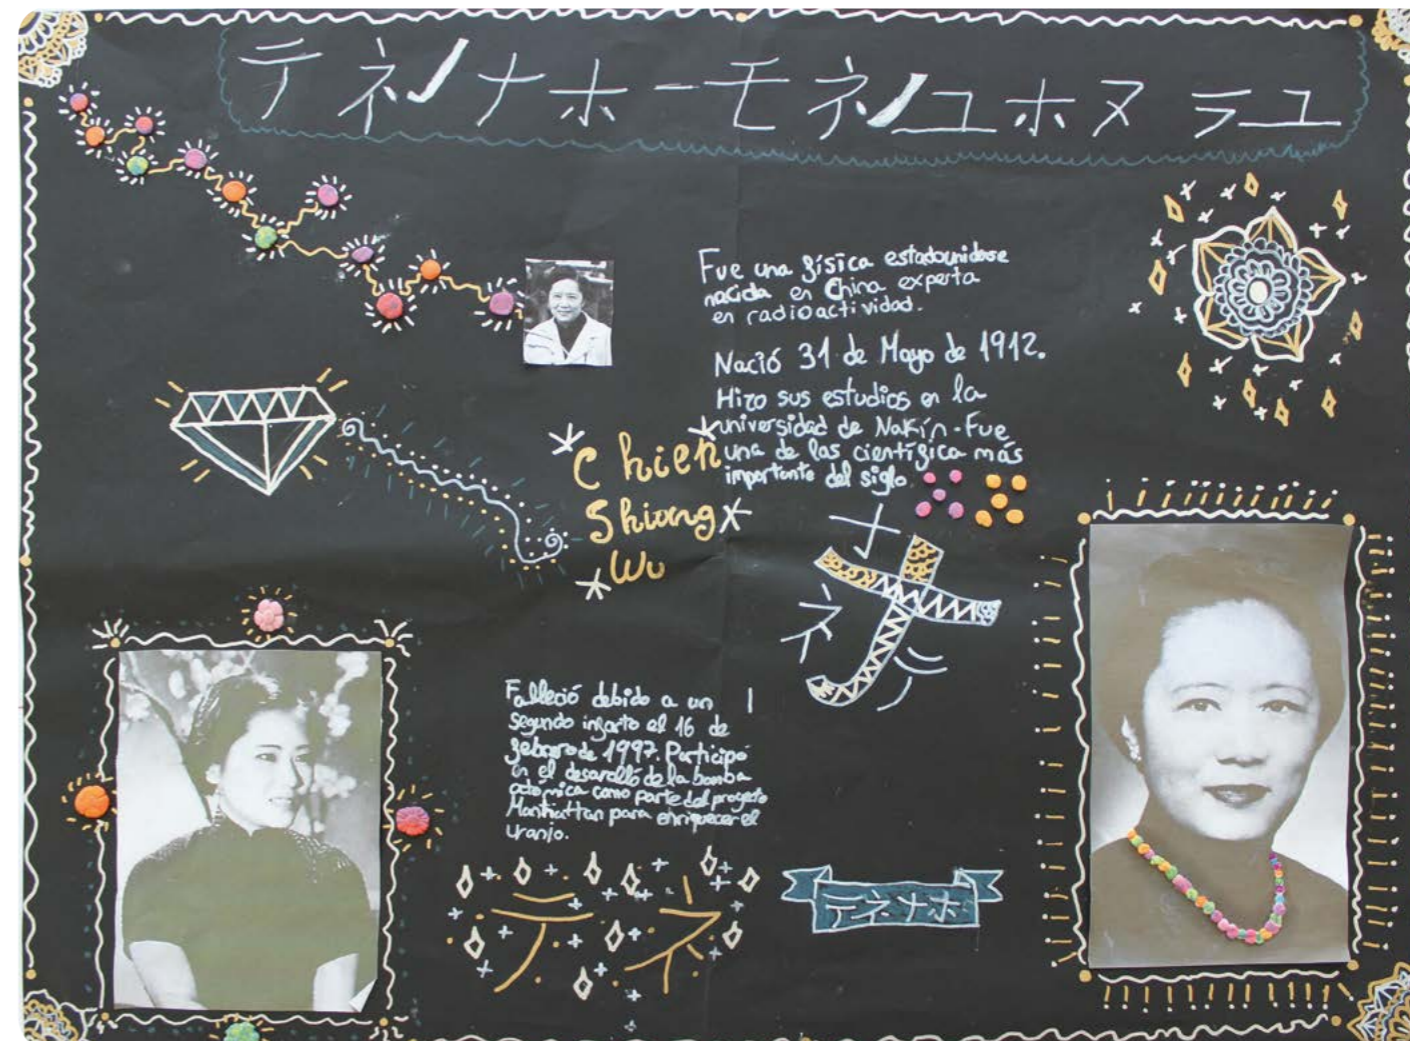 テネノナホーモネノユホヌラユ
Fue una física estadounidense
nacida en China experta
en radioactividad.
Nació 31 de Mayo de 1912.
Hizo sus estudios en la
universidad de Nakín-Fue
una de las científica más
importante del siglo
Chien
Shiong
Wu
ナ
ネ
Falleció debido a un
segundo infarto el 16 de
febrero de 1997. Participó
en el desarolló de la bomba
atómica como parte del proyecto
Manhattan para enriquecer el
uranio.
テネ
テネナホ